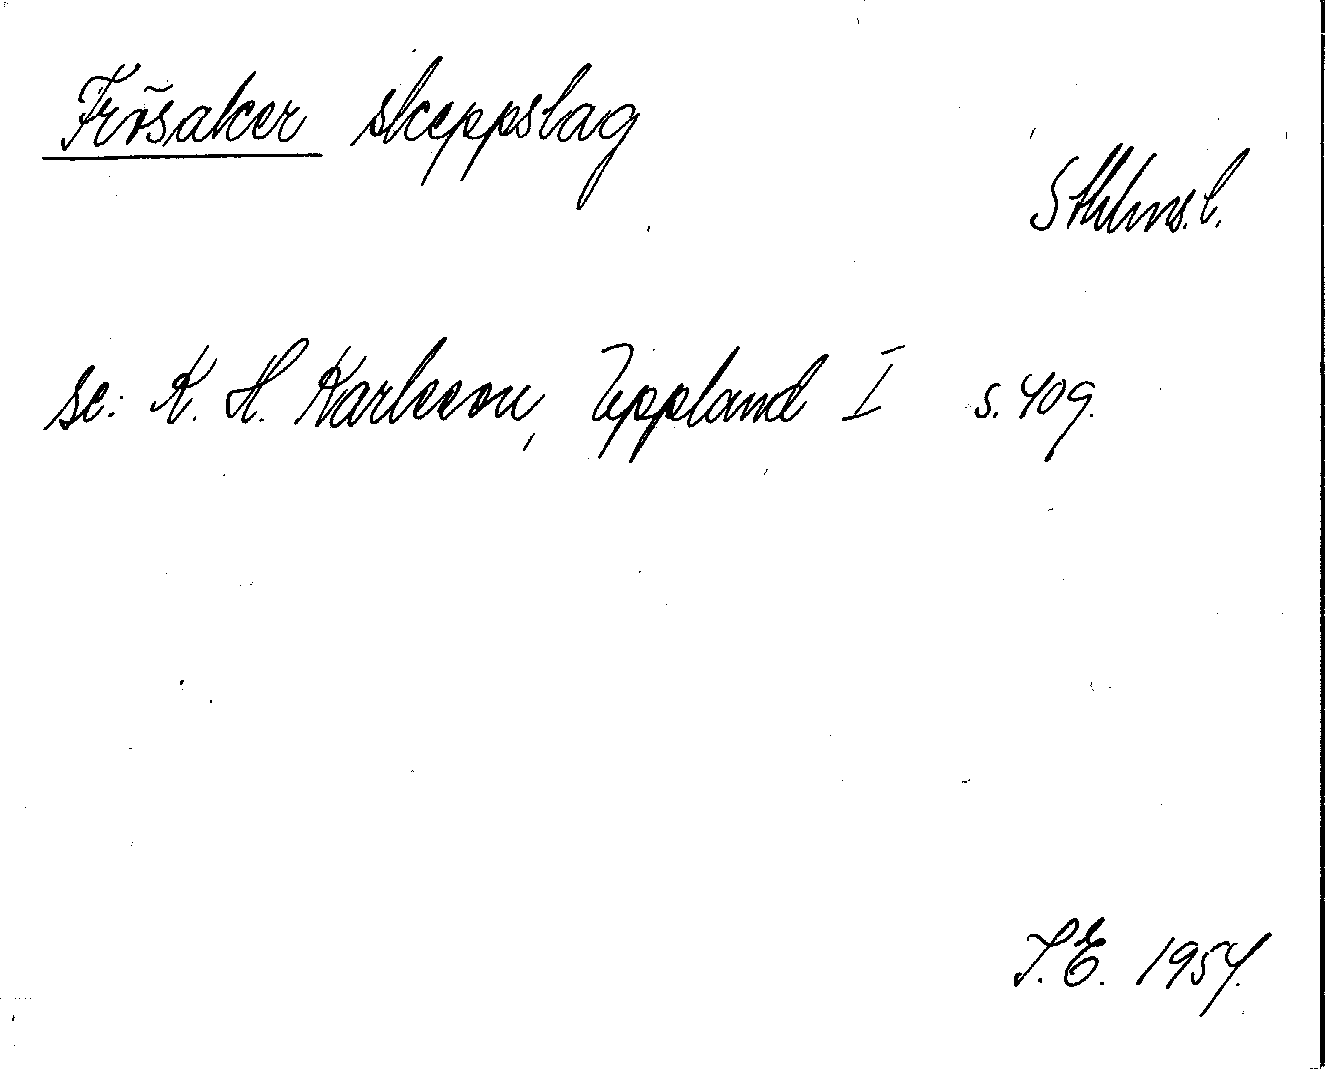 Frösaker skeppslag
Sthlms. l.
se: K. H. Karlsson, Uppland I s. 409.
S.E. 1954.